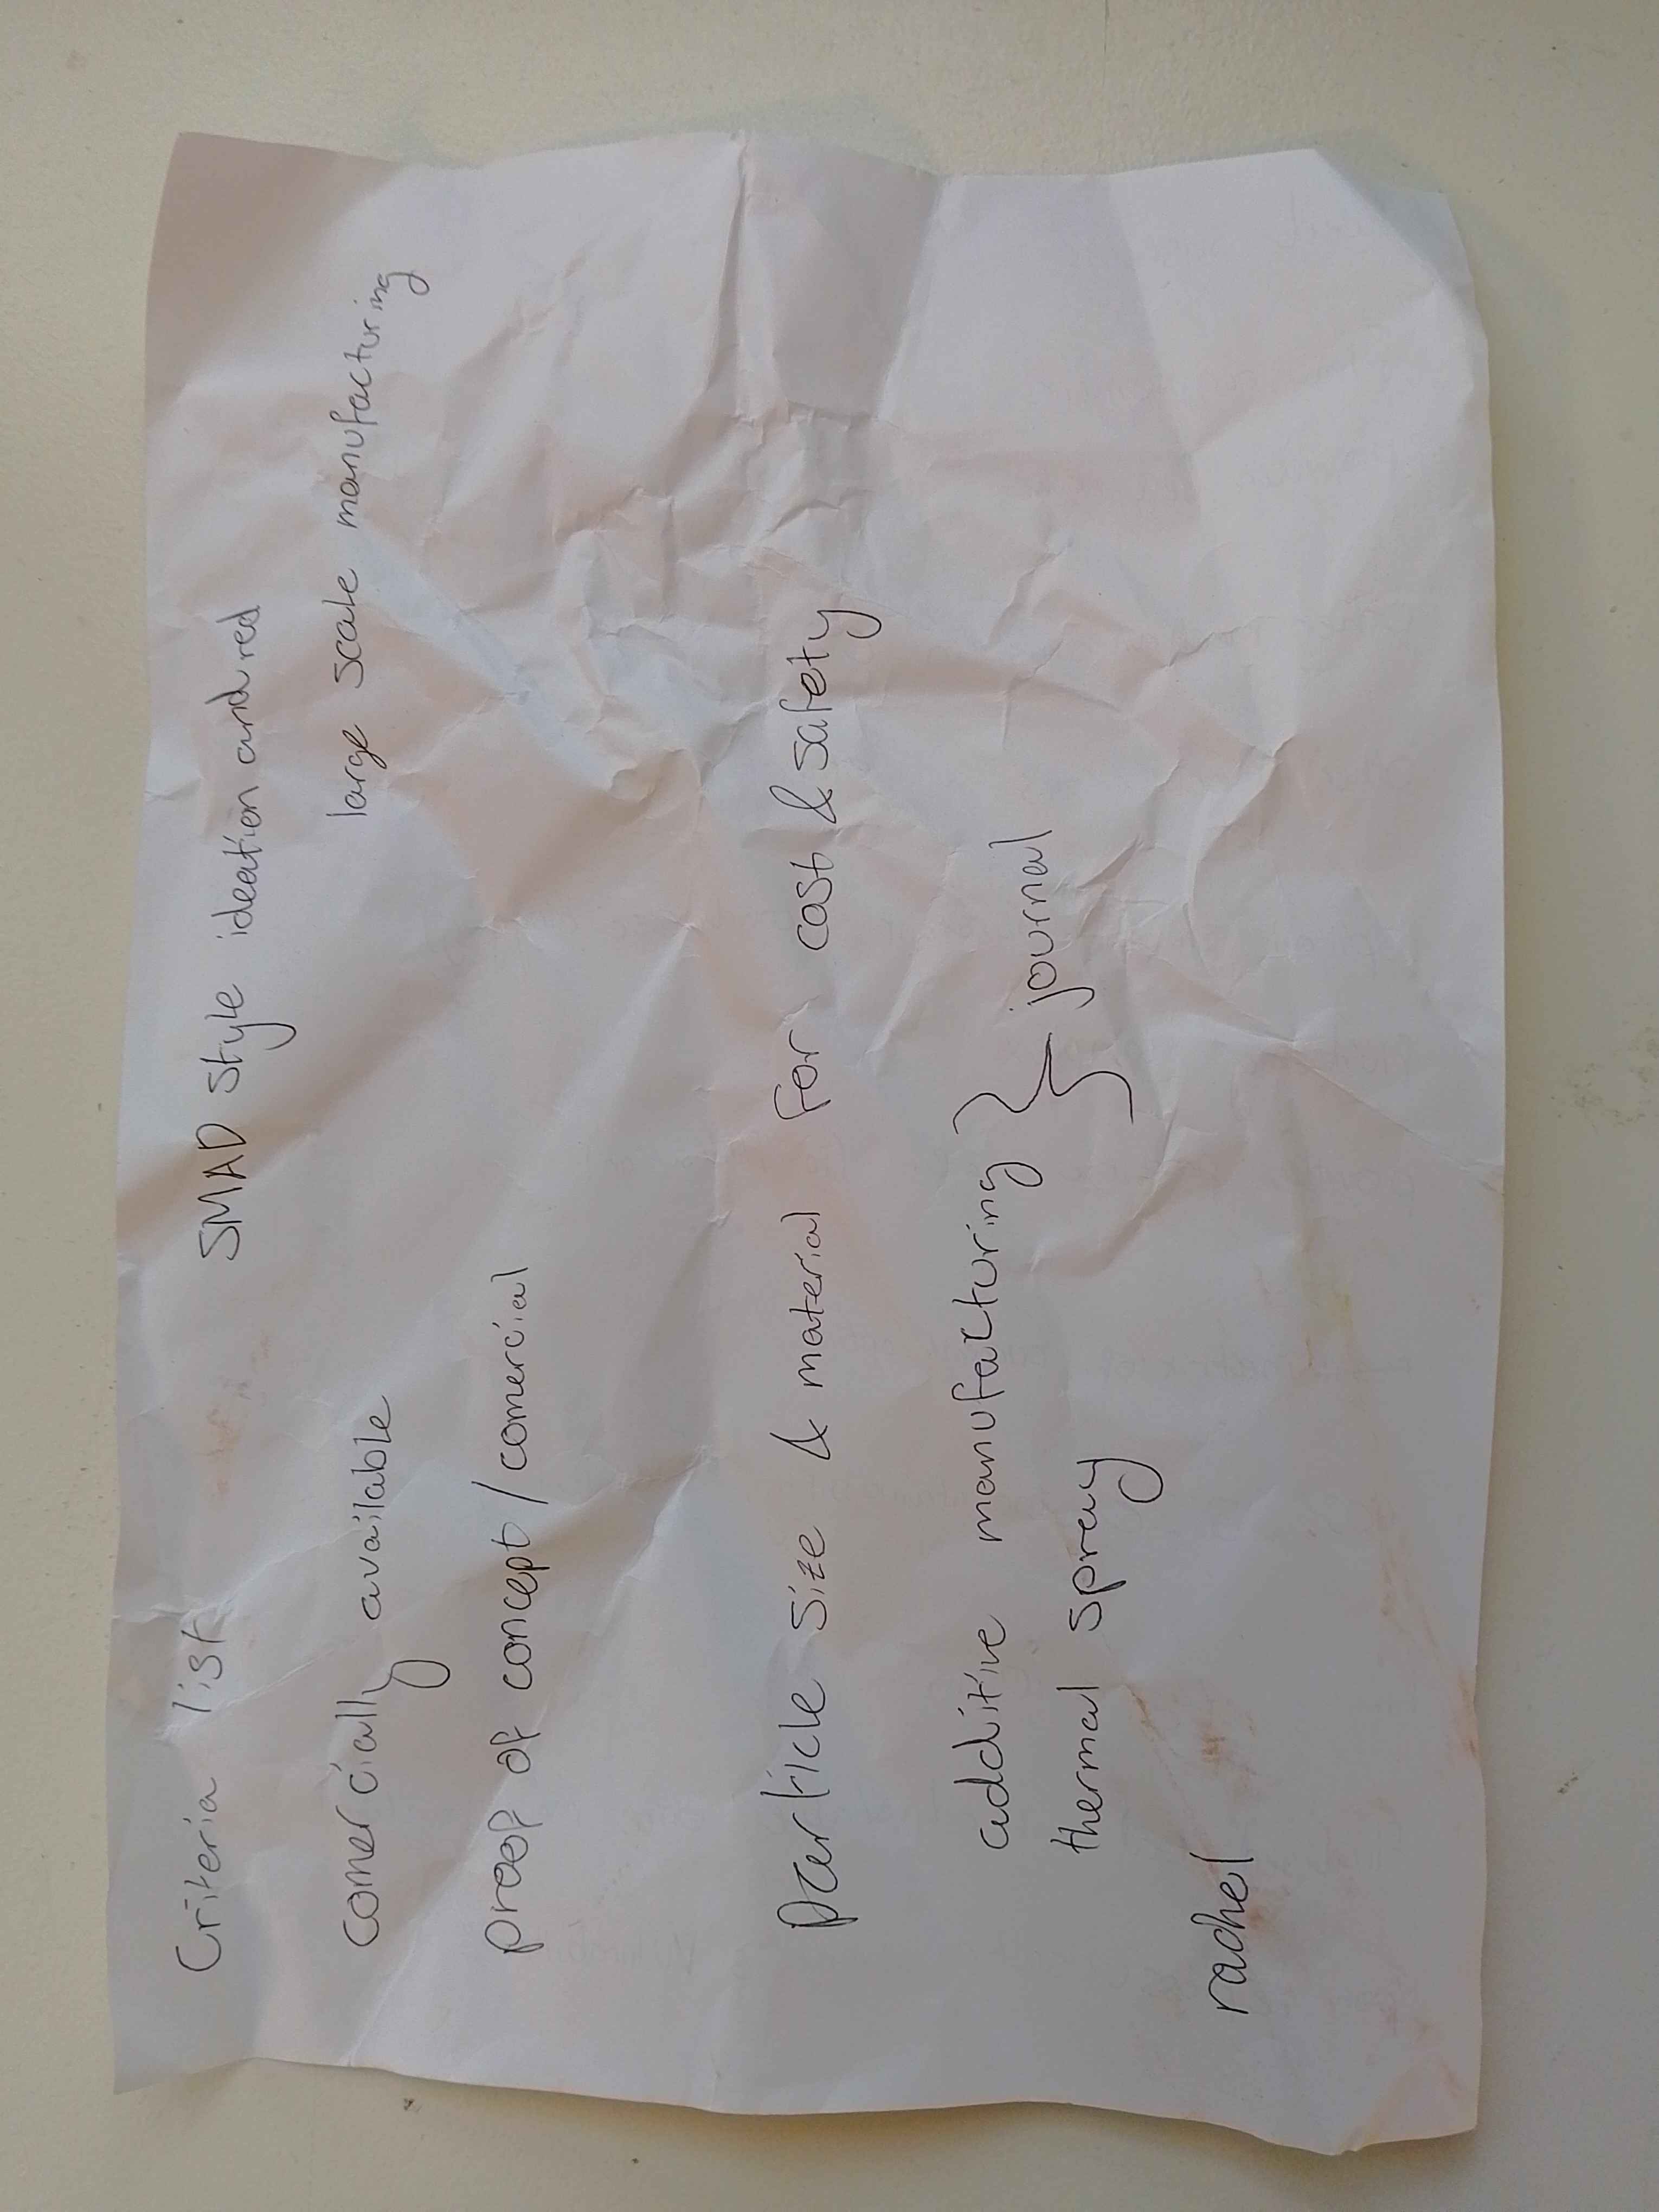 Criteria list SMAD style ideation and red
comercially available large scale manufacturing
proof of concept / comercial
particle size & material for cost & safety
additive manufacturing } journal
thermal spray
rachel